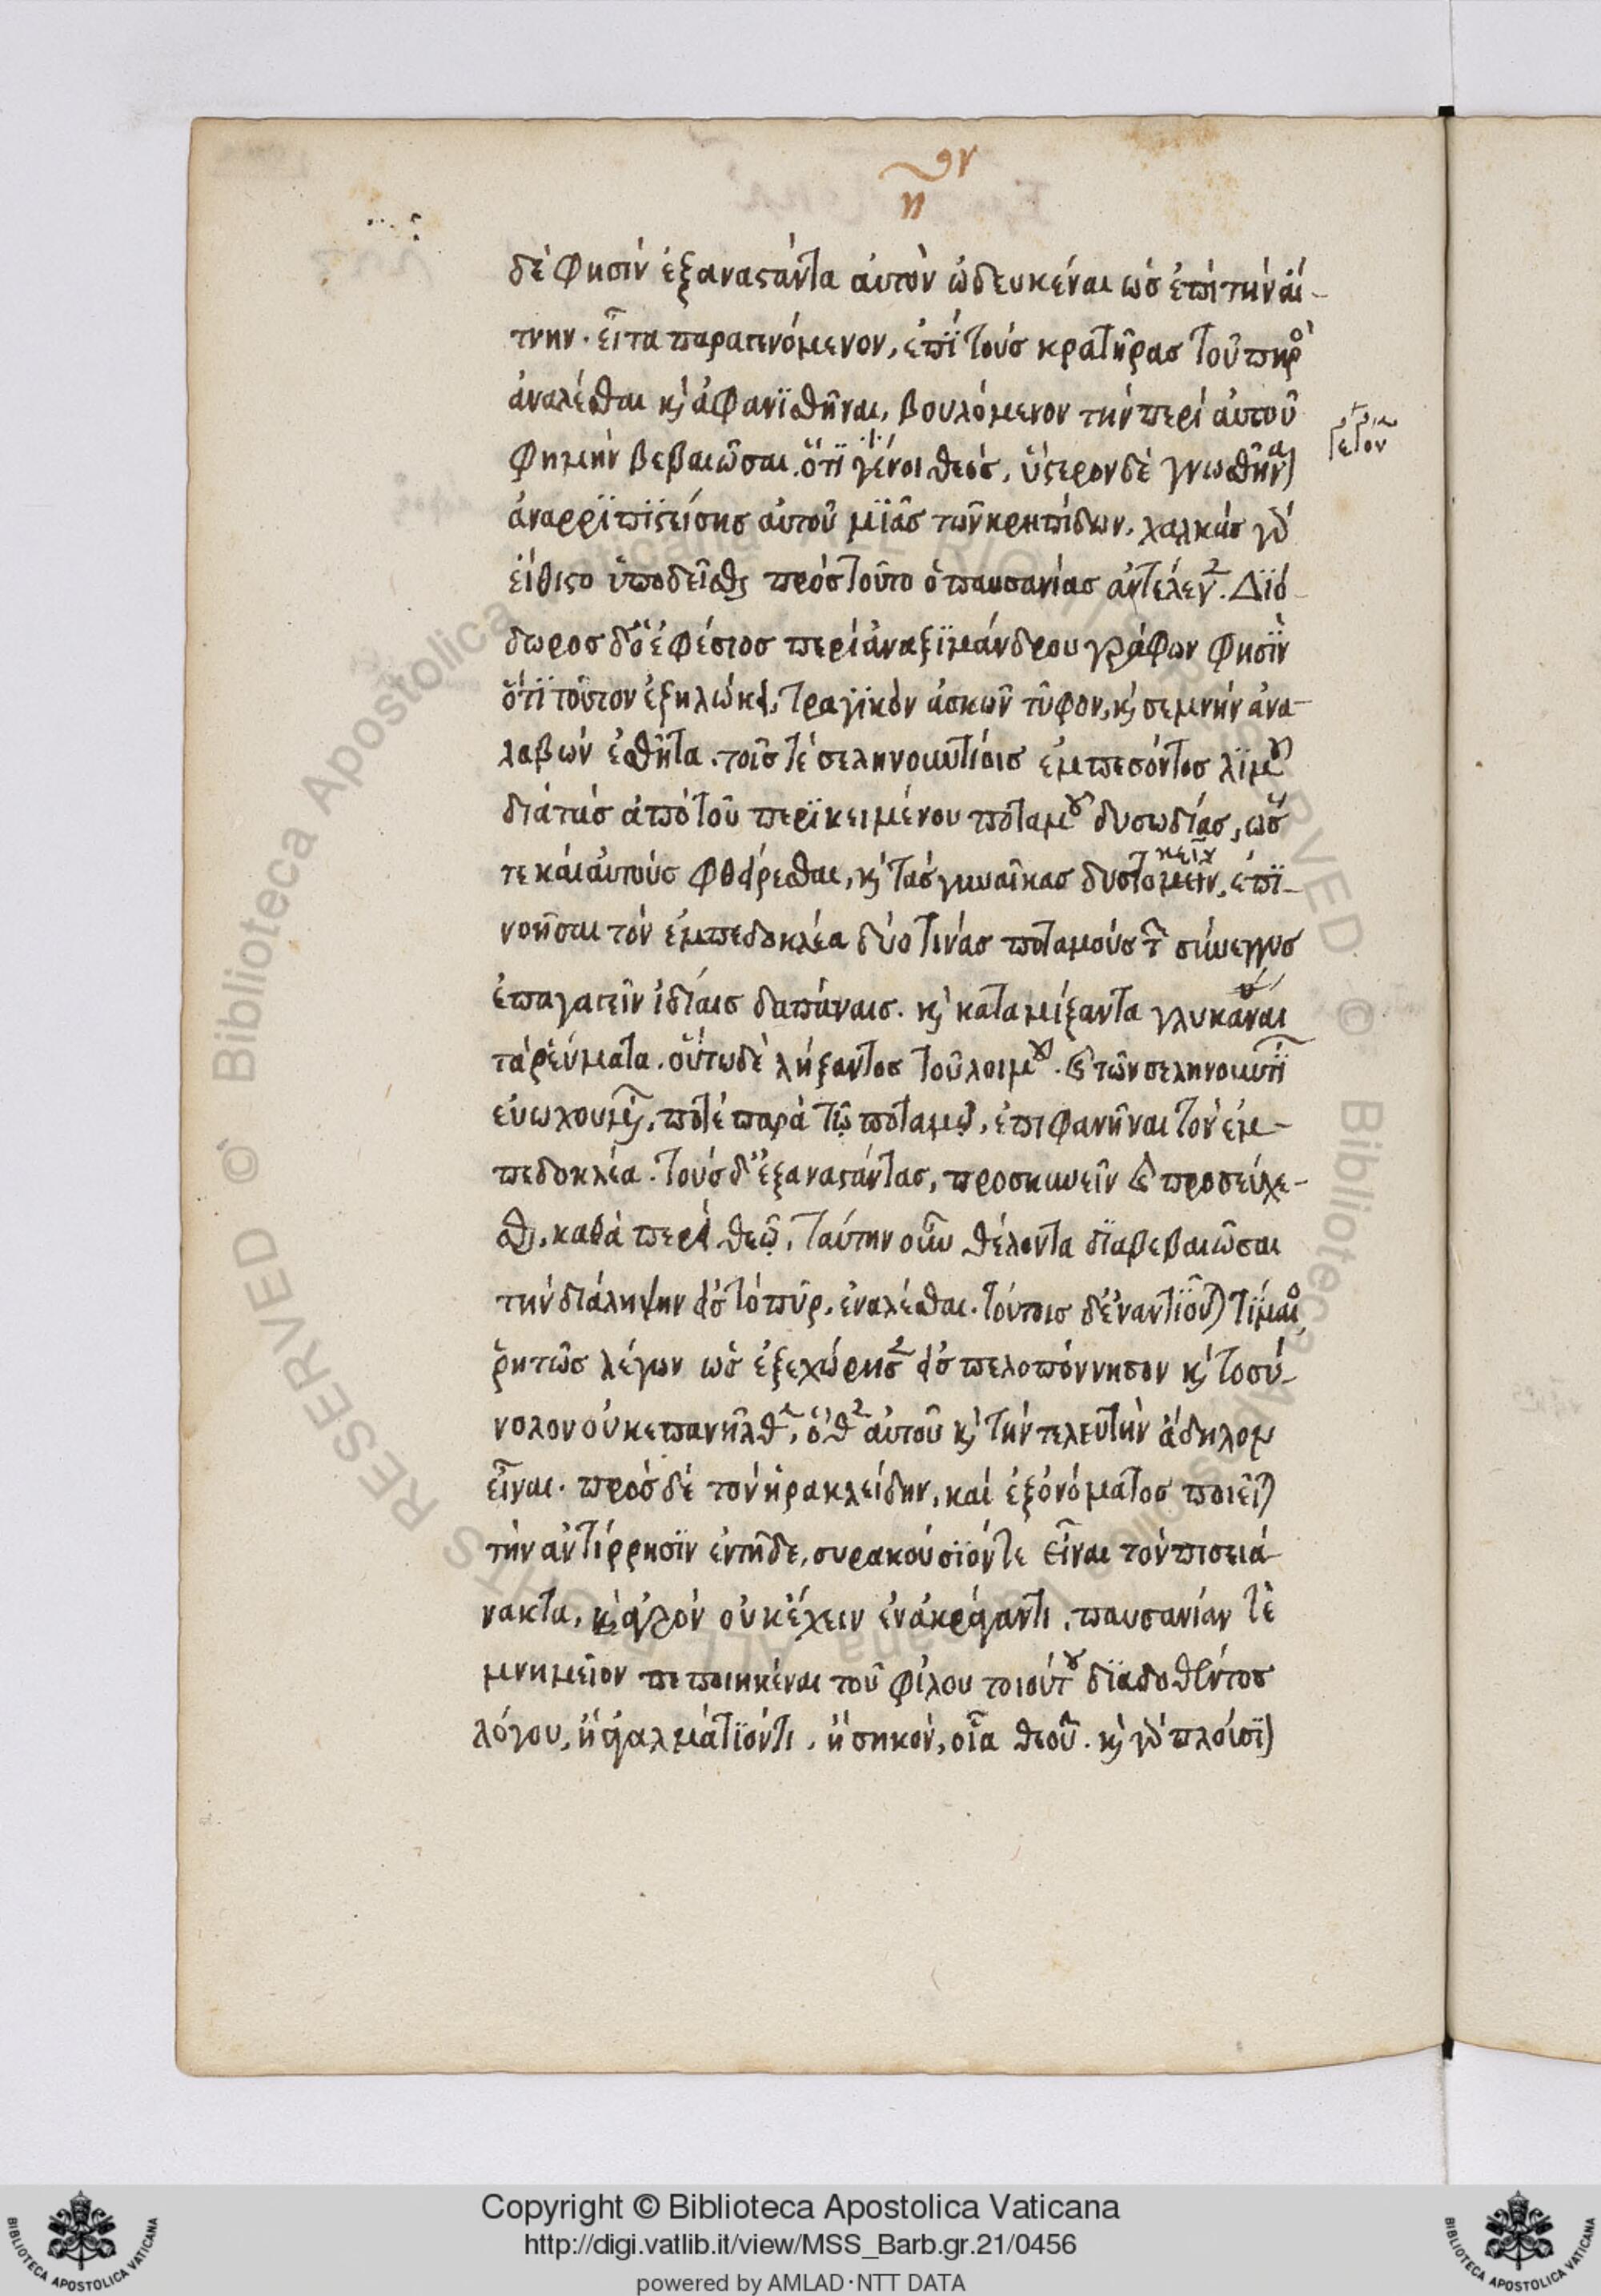 δέ φησιν ἐξαναστάντα αὐτὸν ὡδευκέναι ὡς ἐπὶ τὴν αἴ-
τνην. εἶτα παραγενόμενον, ἐπὶ τοὺς κρατῆρας τοῦ πυρὸ
ἐναλέσθαι κ̀ ἀφανισθῆναι, βουλόμενον τὴν περὶ αὐτοῦ
φήμην βεβαιῶσαι. ὅτι γένοι θεός, ὕστερον δὲ γνωσθῆναι
ἀναρριπιστείσης αὐτοῦ μιᾶς τῶν κρηπίδων. χαλκὰς γὰρ
εἴθιστο ὑποδεῖσθαι πρὸς τοῦτο ὁ παυσανίας ἀντέλεγεν. Διό-
δωρος δ' ὁ ἐφέσιος περὶ ἀναξιμάνδρου γράφων φησὶν
ὅτι τοῦτον ἐζηλώκει, τραγικὸν ἀσκῶν τῦφον, κ̀ σεμνὴν ἀνα-
λαβὼν ἐσθῆτα. τοῖς τὲ σεληνουντίοις ἐμπεσόντος λιμοῦ
διὰ τὰς ἀπὸ τοῦ περικειμένου ποταμοῦ δυσωδίας, ὥσ
τε καὶ αὐτοὺς φθείρεσθαι, κ̀ τὰς γυναῖκας δυστομεῖν, ἐπι-
νοῆσαι τὸν ἐμπεδοκλέα δύο τινὰς ποταμοὺς τῶν σύνεγγυς
ἐπαγαγεῖν ἰδίαις δαπάναις. κ̀ καταμίξαντα γλυκᾶναι
τὰ ῥεύματα. οὕτω δὲ λήξαντος τοῦ λοιμοῦ. κ̀ τῶν σεληνουντί
εὐωχουμένων, ποτὲ παρὰ τῷ ποταμῷ, ἐπιφανῆναι τὸν ἐμ-
πεδοκλέα. τοὺς δ' ἐξαναστάντας, προσκυνεῖν κ̀ προσεύχε-
σθαι, καθάπερεὶ θεῷ. ταύτην οὖν θέλοντα διαβεβαιῶσαι
τὴν διάληψιν εἰς τὸ πῦρ, ἐναλέσθαι. τούτοις δ' ἐναντιοῦται τίμαιο
ῥητῶς λέγων ὡς ἐξεχώρησεν εἰς πελοπόννησον κ̀ τοσύ-
νολον οὐκ ἐπανῆλθεν, ὅθεν αὐτοῦ κ̀ τὴν τελευτὴν ἄδηλον
εἶναι. πρὸς δὲ τὸν ἡρακλείδην, καὶ ἐξ ὀνόματος ποιεῖται
τὴν ἀντίρρησιν ἐν τῇ δε, συρακούσιόν τε εἶναι τὸν πεισιά-
νακτα, κ̀ ἀγρὸν οὐκ ἔχειν ἐν ἀκράγαντι. παυσανίαν τὲ
μνημεῖον πεποιηκέναι τοῦ φίλου τοιούτου διαδοθέντος
λόγου, ἢ ἀγαλμάτιόν τι. ἢ σηκόν, οἷα θεοῦ. κ̀ γὰρ πλούσι